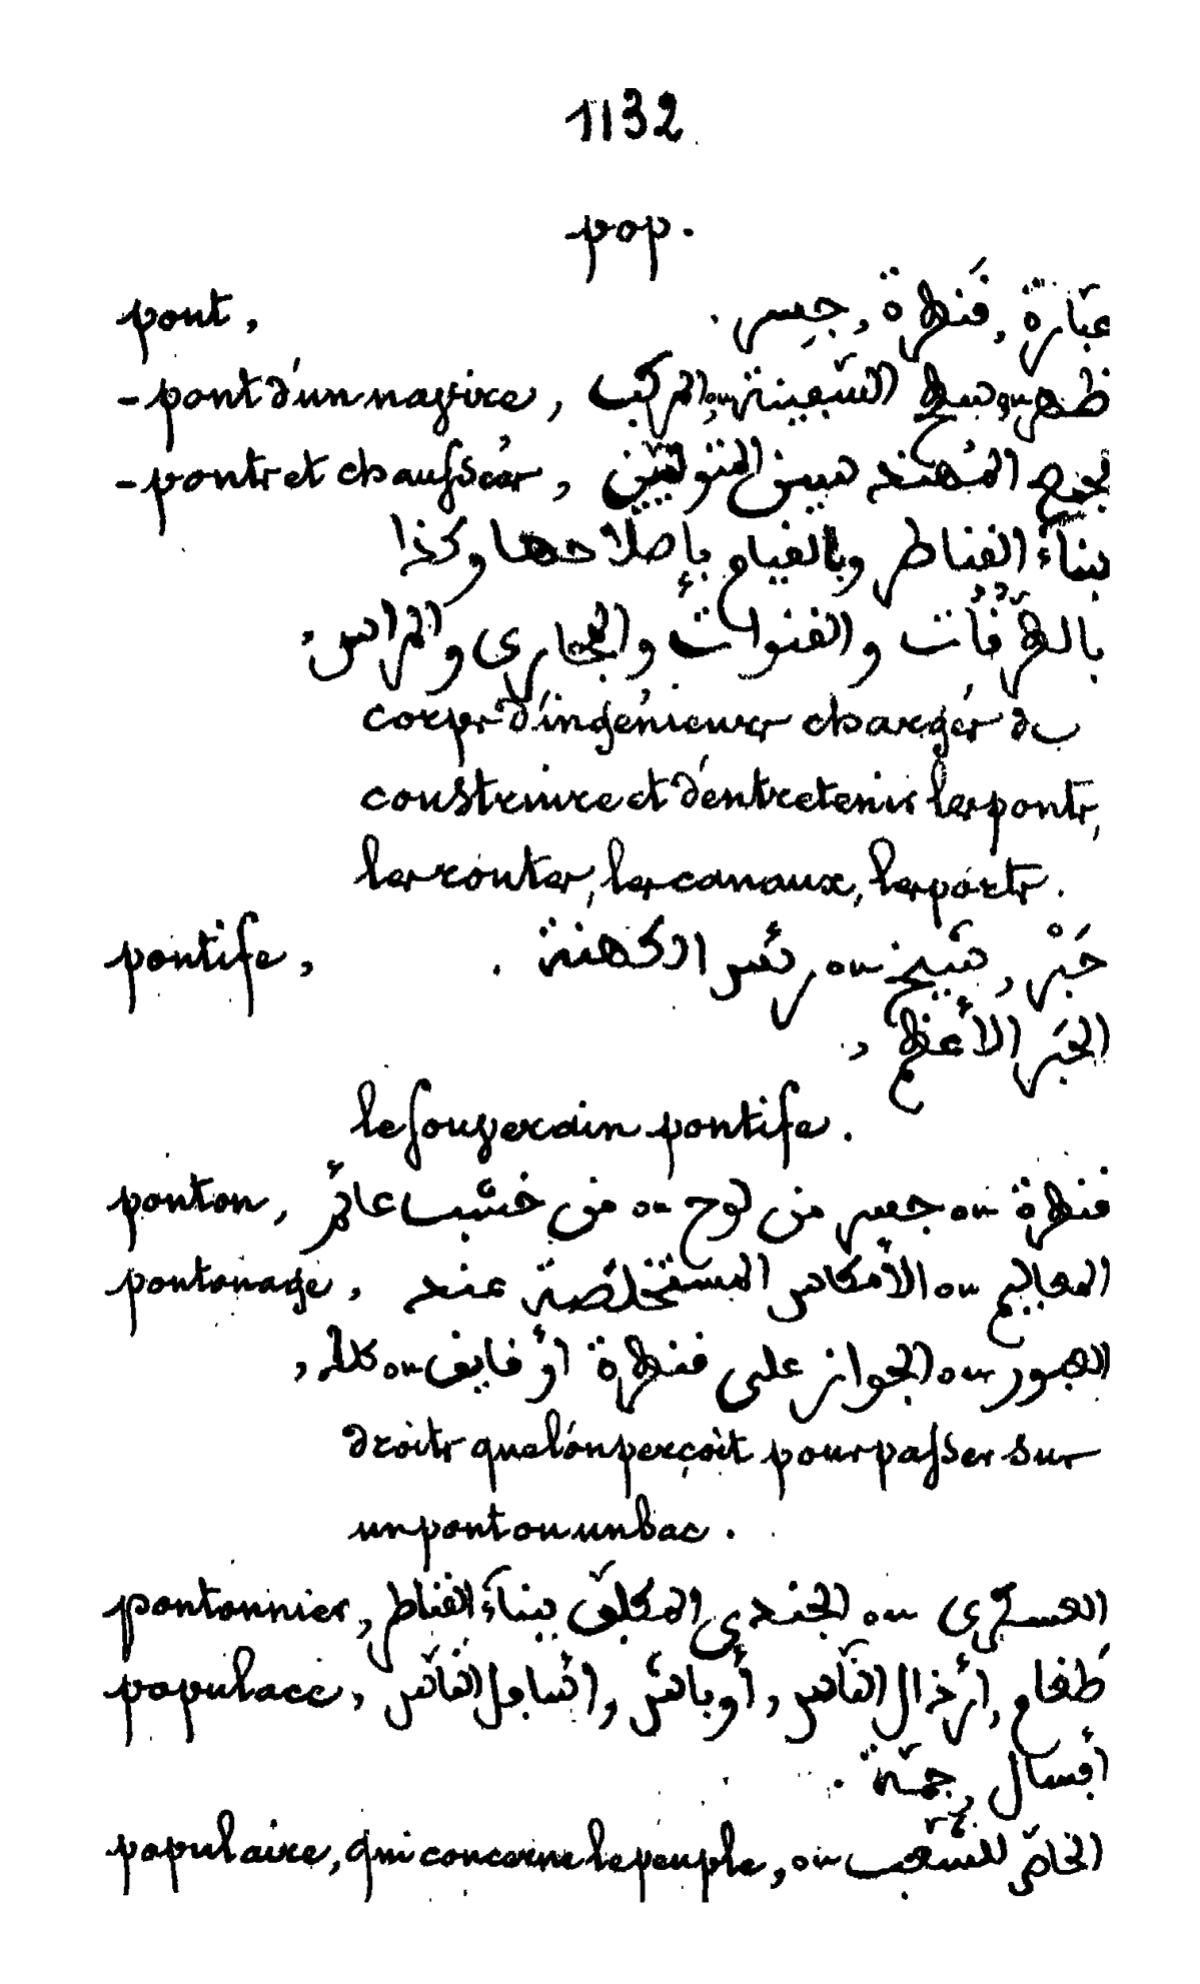 1132
pop.
pont, عبّارة, قَنطرة, جِسر.
- pont d'un navire, ظهر ou سطح السّفينة ou المركب
- ponts et chaussées, المُهندسين المتولّيين
ببناءِ القناطر وبالقيام بإصلاحها وكذا
بالطّرقات والقنوات والمجاري والمراسي,
corps d'ingénieurs chargés de
construire et d'entretenir les ponts,
les routes, les canaux, les ports.
pontife, حَبْر, شيخ ou رئس الكهنة.
الحَبر الأعظم,
le souverain pontife.
ponton, قنطرة ou جسر من لوح ou من خشب عائم
pontonage, ou الأمكاس المستخلَصة عند
العبور ou الجواز على قنطرة أو فايق ou,
droits que l'on perçoit pour passer sur
un pont ou un bac.
pontonnier, العسكري ou الجندي المكلّف ببناءَ القناطر
populace, طَغام, أرْذال النّاس, أوباش, أسافل النّاس,
أفسال, جمّة.
populaire, qui concerne le peuple, ou الخاصّ للشّعب